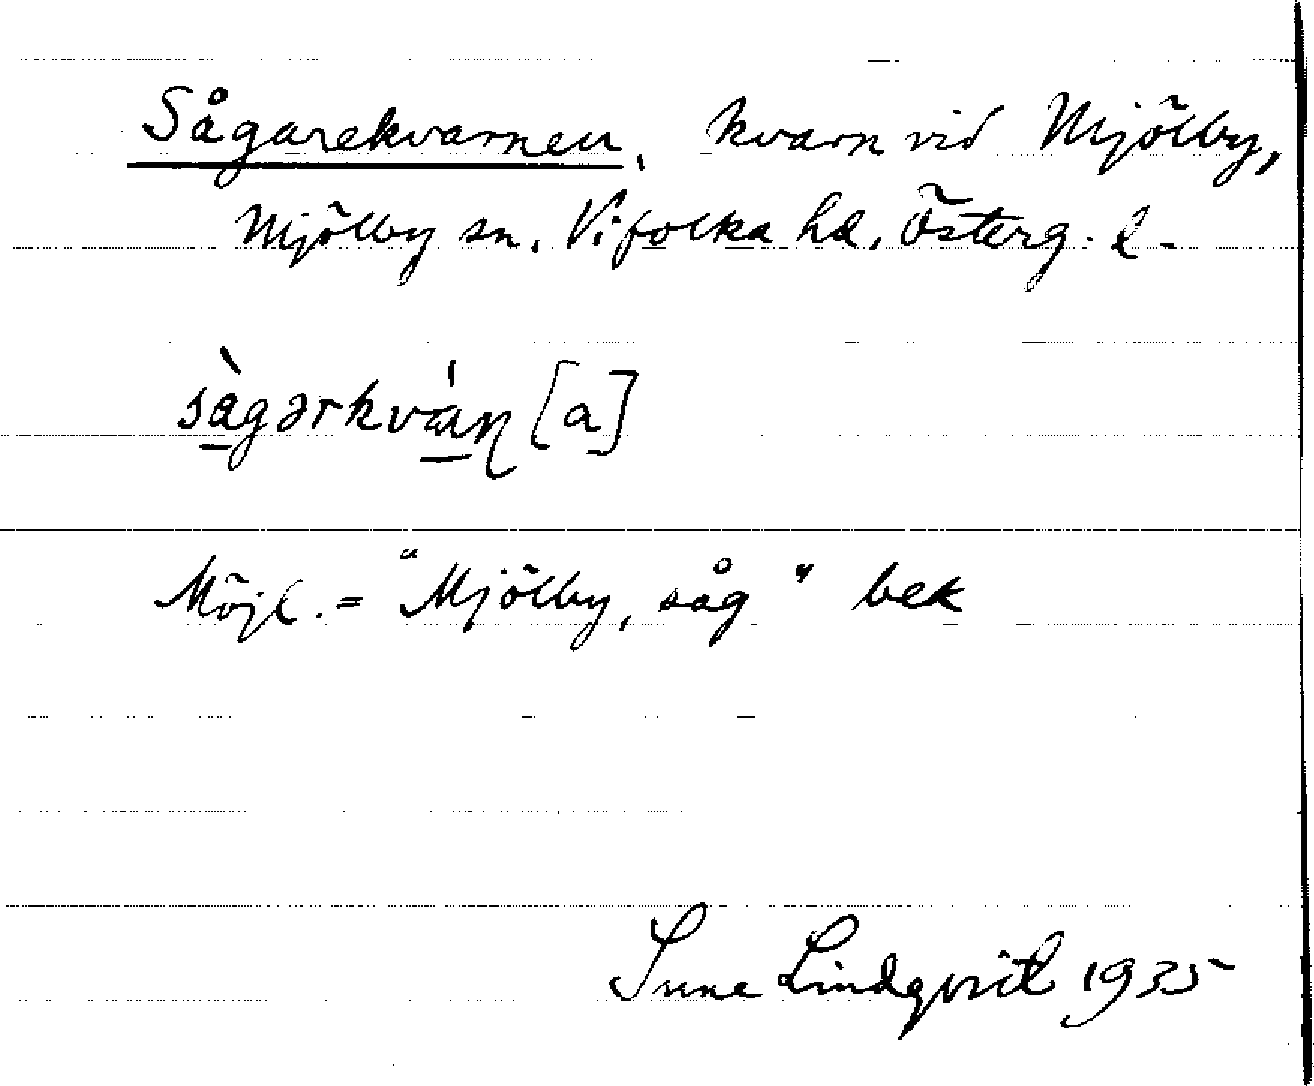 Sågarekvarnen, kvarn vid Mjölby,
Mjölby sn, Vifolka hd, Österg. l.
sàgərkván [a]
Möjl. = "Mjölby, såg" bek
Sune Lindqvist 1935